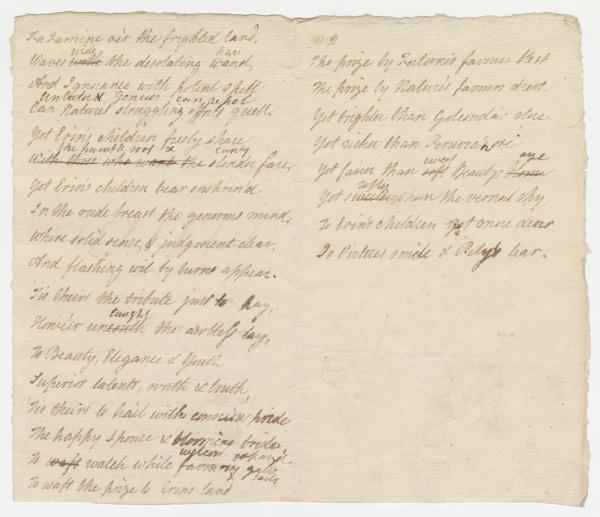 Tho Famine o'er the frighted land,
wide her
Waves the desolating wand,
And Ignorance with potent spell
Untutor'd Genius can repel
Can Nature's struggling efforts quell.
Yet Erin's children freely share
the humble roof & scanty
With those who want the slender fare,
Yet Erin's children bear enshrin'd
In the rude breast the generous mind,
Where solid sense, & judgement clear,
And flashing wit by turns appear.
'Tis theirs the tribute just to pay,
taught
Howe'er uncouth the artless lay,
To Beauty, Elegance & Youth
Superior talents, worth & truth,
'Tis theirs to hail with conscious pride
The happy Spouse & blooming bride
To waft watch while favouring gales
sails
To waft the prize to Erin's land
The prize by Fortune's favours blest
The prize by Nature's favours drest
Yet brighter than Golconda's
Yet richer than Peruvia's ore
sweet
Yet fairer than soft Beauty's
Yet softer than the vernal sky
To Erin's children yet more dear
Is Virtues smile & Pity's tear.